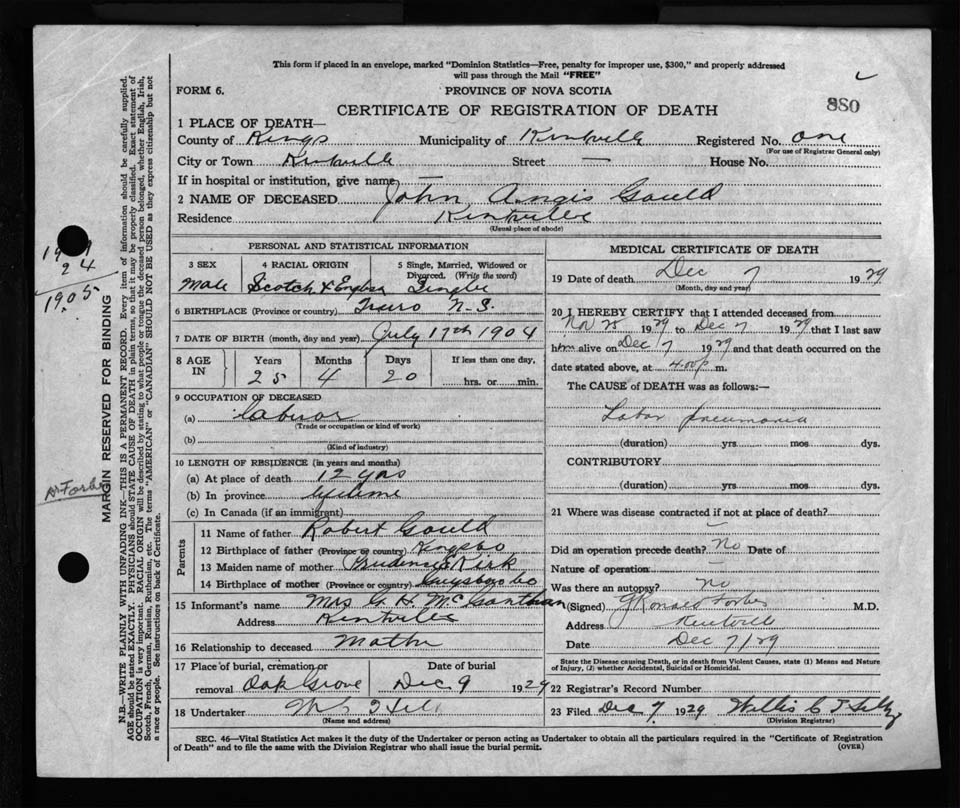 This form if placed in an envelope, marked "Dominion Statistics—Free, penalty for improper use, $300," and properly addressed
will pass through the Mail "FREE"
FORM 6. PROVINCE OF NOVA SCOTIA
880
CERTIFICATE OF REGISTRATION OF DEATH
1 PLACE OF DEATH—
County of Kings Municipality of Kentville Registered No. one
(For use of Registrar General only)
City or Town Kentville Street — House No.
If in hospital or institution, give name —
2 NAME OF DECEASED John Angis Gould
Residence Kentville
(Usual place of abode)
PERSONAL AND STATISTICAL INFORMATION
3 SEX 4 RACIAL ORIGIN 5 Single, Married, Widowed or
Divorced. (Write the word)
Male Scotch & English Single
6 BIRTHPLACE (Province or country) Truro N.S.
7 DATE OF BIRTH (month, day and year) July 17th 1904
8 AGE IN Years Months Days If less than one day,
25 4 20 hrs. or min.
9 OCCUPATION OF DECEASED
(a) Laburor
(Trade or occupation or kind of work)
(b)
(Kind of industry)
10 LENGTH OF RESIDENCE (in years and months)
(a) At place of death 12 yrs
(b) In province lifetime
(c) In Canada (if an immigrant)
Parents
11 Name of father Robert Gould
12 Birthplace of father (Province or country)
13 Maiden name of mother Prudence Kirk
14 Birthplace of mother (Province or country) Guysboro Co
15 Informant's name Mrs G. H. McCanthan
Address Kentville
16 Relationship to deceased Mother
17 Place of burial, cremation or Date of burial
removal Oak Grove Dec 9 1929
18 Undertaker
(Name and address)
MEDICAL CERTIFICATE OF DEATH
19 Date of death Dec 7 1929
(Month, day and year)
20 I HEREBY CERTIFY that I attended deceased from
Nov 25 1929 to Dec 7 1929 that I last saw
him alive on Dec 7 1929 and that death occurred on the
date stated above, at 4.00 p m.
The CAUSE of DEATH was as follows:—
Lobar pneumonia
(duration) yrs. mos. dys.
CONTRIBUTORY
(duration) yrs. mos. dys.
21 Where was disease contracted if not at place of death?
Did an operation precede death? No Date of
Nature of operation
Was there an autopsy? no
(Signed) G Ronald Forbes M.D.
Address Kentville
Date Dec 7/29
State the Disease causing Death, or in death from Violent Causes, state (1) Means and Nature
of Injury, (2) whether Accidental, Suicidal or Homicidal.
22 Registrar's Record Number
23 Filed Dec 7 1929 Willis C T
(Division Registrar)
SEC. 46—Vital Statistics Act makes it the duty of the Undertaker or person acting as Undertaker to obtain all the particulars required in the "Certificate of Registration
of Death" and to file the same with the Division Registrar who shall issue the burial permit. (OVER)
MARGIN RESERVED FOR BINDING
N.B.—WRITE PLAINLY WITH UNFADING INK—THIS IS A PERMANENT RECORD. Every item of information should be carefully supplied.
AGE should be stated EXACTLY. PHYSICIANS should STATE CAUSE OF DEATH in plain terms, so that it may be properly classified. Exact statement of
OCCUPATION is very important. RACIAL ORIGIN will be described by stating to what people or tongue the deceased person belonged, whether English, Irish,
Scotch, French, German, Russian, Ruthenian, etc. The terms "AMERICAN" or "CANADIAN" SHOULD NOT BE USED as they express citizenship but not
a race or people. See instructions on back of Certificate.
24
1905